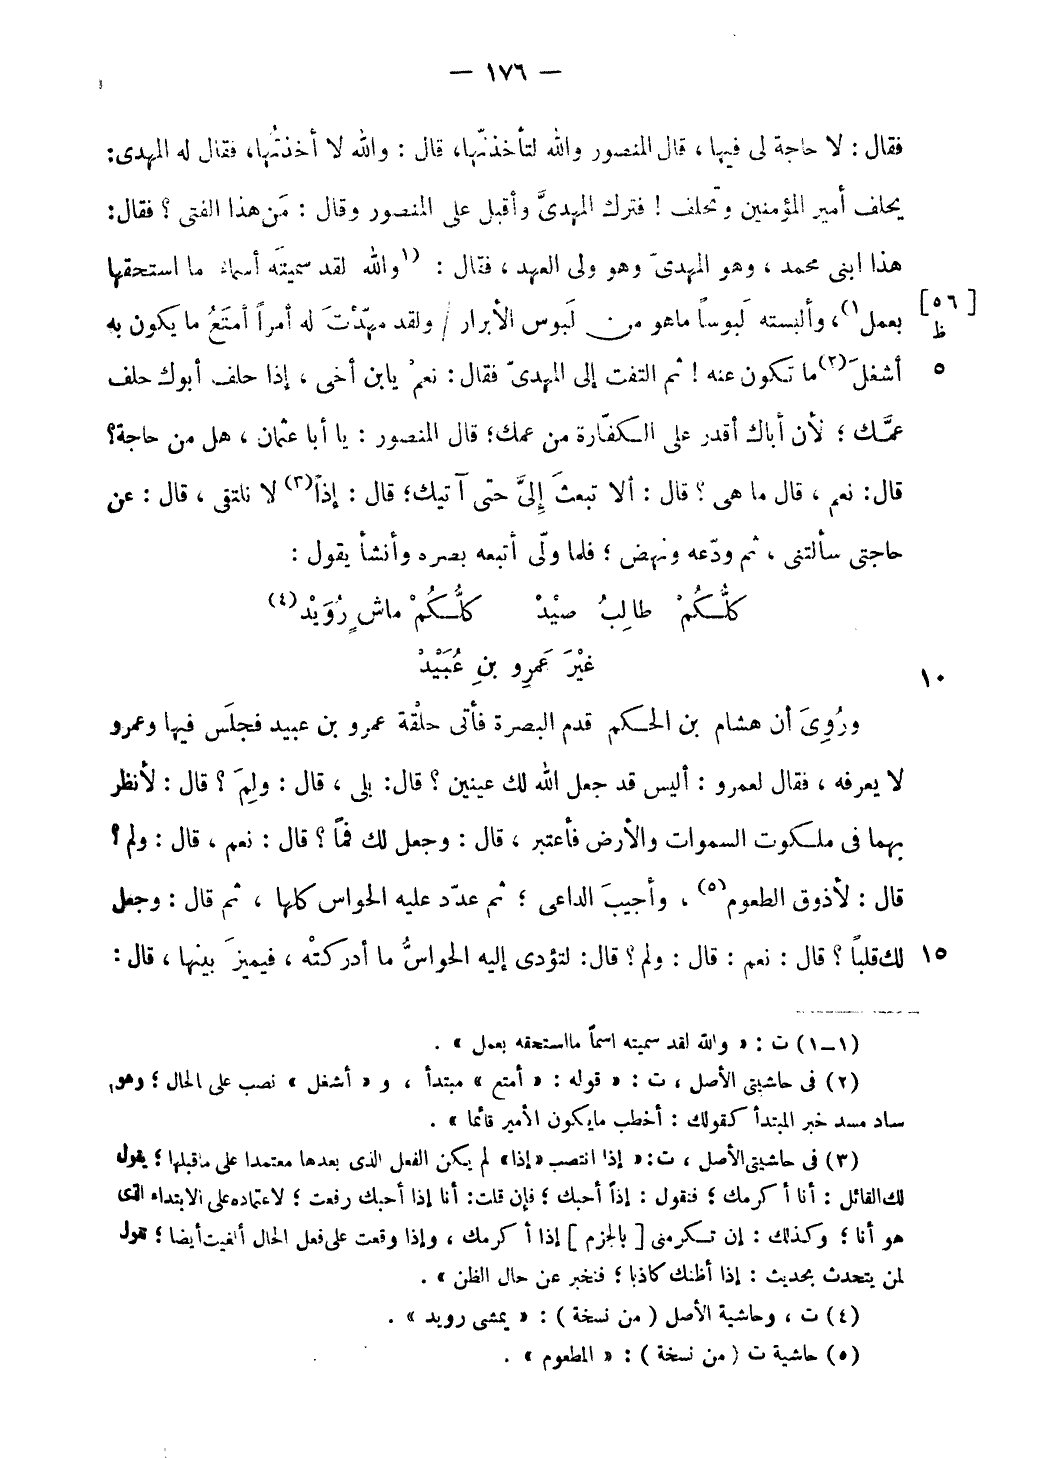 — ١٧٦ —
فقال : لا حاجة لى فيها ، قال المنصور والله لتأخذنّها، قال : والله لا أخذتُها، فقال له المهدى:
يحلف أمير المؤمنين وتحلف ! فترك المهدىَّ وأقبل على المنصور وقال : مَن هذا الفتى ؟ فقال:
هذا ابنى محمد ، وهو المهدىّ وهو ولى العهد ، فقال : (١والله لقد سميتَه أسماء ما استحقها
بعمل١)، وألبسته لَبوساً ماهو من لَبوس الأبرار / ولقد مهّدْتَ له أمراً أمتَعُ ما يكون به [٥٦ ظ]
أشغلَ(٢) ما تكون عنه ! ثم التفت إلى المهدىّ فقال : نعمْ يابن أخى ، إذا حلف أبوك حلف ٥
عمَّك ؛ لأن أباك أقدر على الكفّارة من عمك؛ قال المنصور : يا أبا عثمان ، هل من حاجة؟
قال: نعم ، قال ما هى ؟ قال : ألا تبعثَ إلىَّ حتى آتيك؛ قال : إذاً(٣) لا نلتقى ، قال : عن
حاجتى سألتنى ، ثم ودّعه ونهض ؛ فلما ولّى أتبعه بصره وأنشأ يقول :
كلُّكمْ طالِبُ صيْدْ كلُّكمْ ماشٍ رُوَيْدْ(٤)
غيْرَ عَمرِو بنِ عُبَيْدْ ١٠
ورُوِىَ أن هشام بن الحكم قدم البصرة فأتى حلقْة عمرو بن عبيد فجلَس فيها وعمرو
لا يعرفه ، فقال لعمرو : أليس قد جعل الله لك عينين ؟ قال: بلى ، قال : ولِمَ ؟ قال : لأنظر
بهما فى ملكوت السموات والأرض فأعتبر ، قال : وجعل لك فمًا ؟ قال : نعم ، قال : ولم ؟
قال : لأذوق الطعوم(٥) ، وأجيبَ الداعى ؛ ثم عدّد عليه الحواس كلها ، ثم قال : وجعل
لك قلباً ؟ قال : نعم : قال : ولم ؟ قال: لتؤدى إليه الحواسُّ ما أدركتْه ، فيميزَ بينها ، قال : ١٥
(١-١) ت : « والله لقد سميته اسماً مااستحقه بعمل » .
(٢) فى حاشيتى الأصل ، ت : « قوله : « أمتع » مبتدأ ، و « أشغل » نصب على الحال ؛ وهو
ساد مسد خبر المبتدأ كقولك : أخطب مايكون الأمير قائما » .
(٣) فى حاشيتى الأصل ، ت : « إذا انتصب «إذا» لم يكن الفعل الذى بعدها معتمدا على ماقبلها ؛ يقول
لك القائل : أنا أكرمك ؛ فتقول : إذاً أحبك ؛ فإن قلت: أنا إذا أحبك رفعت ؛ لاعتماده على الابتداء الذى
هو أنا ؛ وكذلك : إن تكرمنى [ بالجزم ] إذا أكرمك ، وإذا وقعت على فعل الحال ألغيت أيضا ؛ تقول
لمن يتحدث بحديث : إذا أظنك كاذبا ؛ فنخبر عن حال الظن » .
(٤) ت ، وحاشية الأصل ( من نسخة ) : « يمشى رويد » .
(٥) حاشية ت ( من نسخة ) : « المطعوم » .